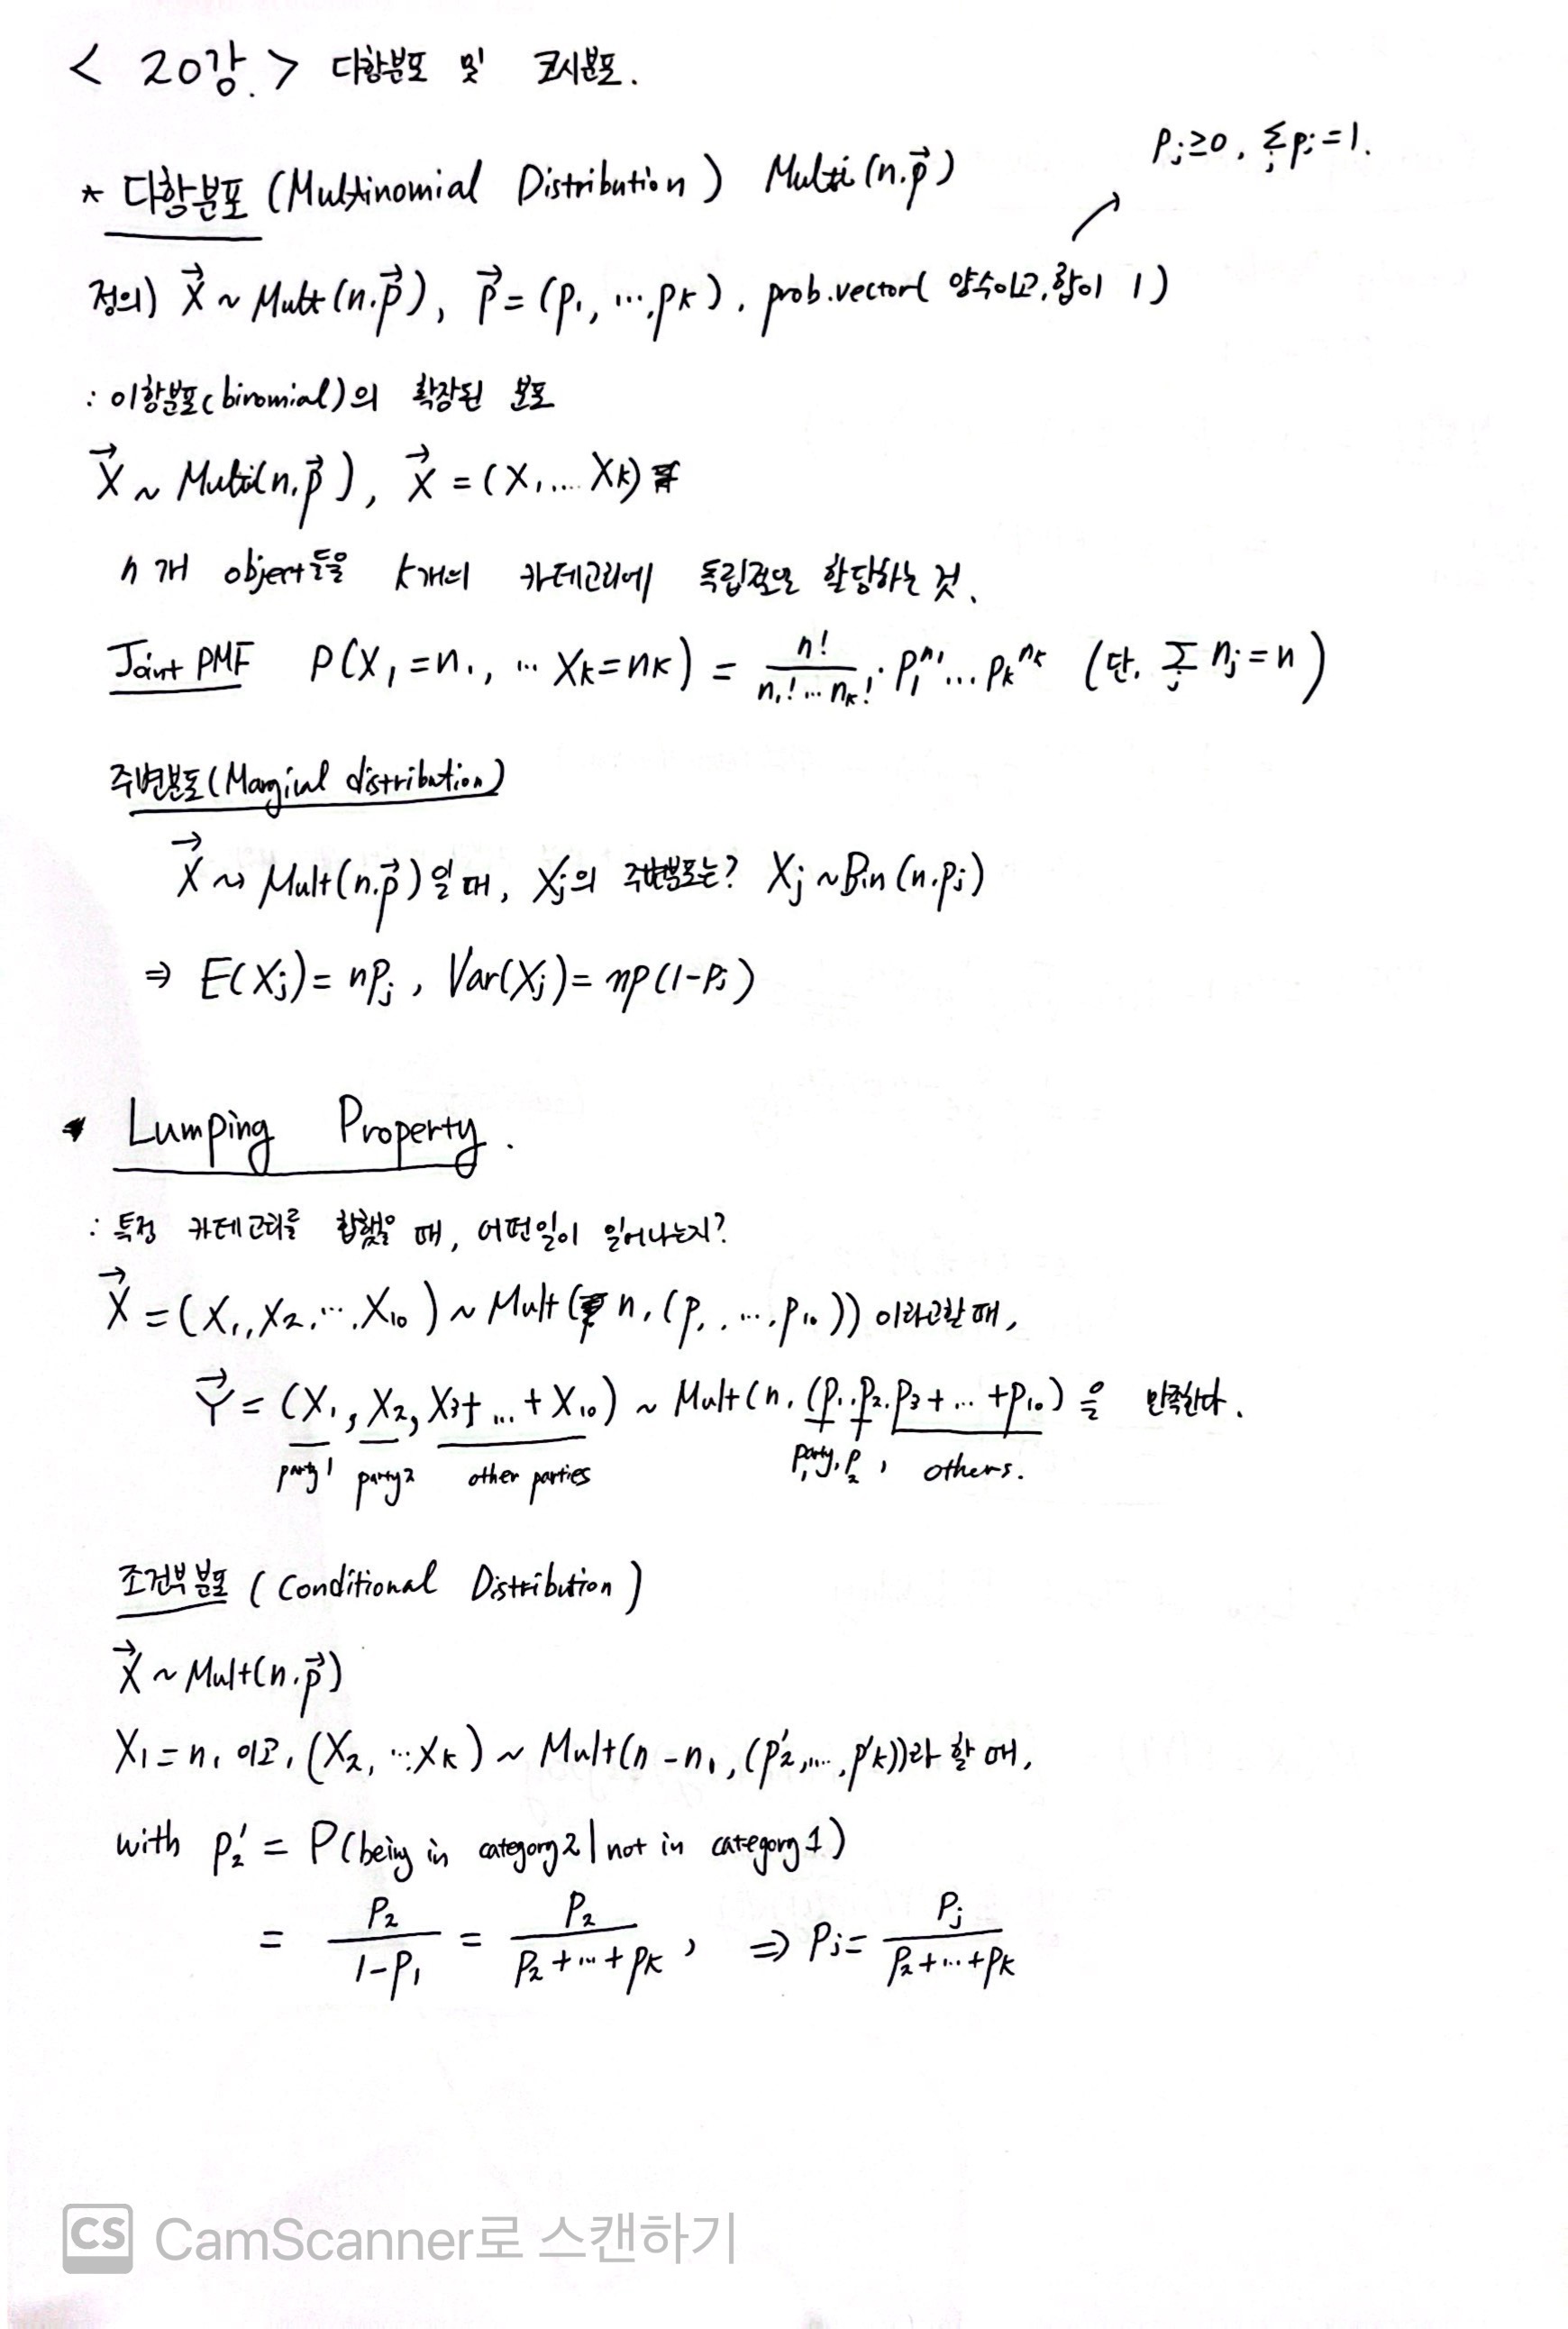 < 20강. > 다항분포 및 코시분포.
P_j ≥ 0, Σ_j p_j = 1.
* 다항분포 (Multinomial Distribution) Multi(n.p⃗)
정의) X⃗ ~ Mult(n.p⃗), p⃗ = (p₁, …, pₖ), prob.vector( 양수이고, 합이 1 )
: 이항분포(binomial)의 확장된 분포
X⃗ ~ Multi(n.p⃗), X⃗ = (X₁, … Xₖ)
n개 object들을 k개의 카테고리에 독립적으로 할당하는 것.
Joint PMF P(X₁=n₁, … Xₖ=nₖ) = n!/(n₁!…nₖ!) · P₁^n₁ … Pₖ^nₖ (단, Σ_j n_j = n)
주변분포(Marginal distribution)
X⃗ ~ Mult(n.p⃗)일 때, X_j의 주변분포는? X_j ~ Bin(n.p_j)
⇒ E(X_j) = np_j, Var(X_j) = np(1-p_j)
* Lumping Property.
: 특정 카테고리를 합했을 때, 어떤일이 일어나는지?
X⃗ = (X₁, X₂, …, X₁₀) ~ Mult(n, (p₁, …, p₁₀)) 이라고할 때,
Y⃗ = (X₁, X₂, X₃+ … + X₁₀) ~ Mult(n, (p₁.p₂.p₃+ … +p₁₀)을 만족한다.
party1 party2 other parties party₁, P₂, others.
조건부 분포 (Conditional Distribution)
X⃗ ~ Mult(n.p⃗)
X₁ = n₁ 이고, (X₂, … Xₖ) ~ Mult(n - n₁, (p₂', …, p'ₖ))라 할 때,
with p₂' = P(being in category2 | not in category1)
= P₂/(1-P₁) = P₂/(P₂+…+pₖ), ⇒ P_j = P_j/(P₂+…+pₖ)
CS CamScanner로 스캔하기